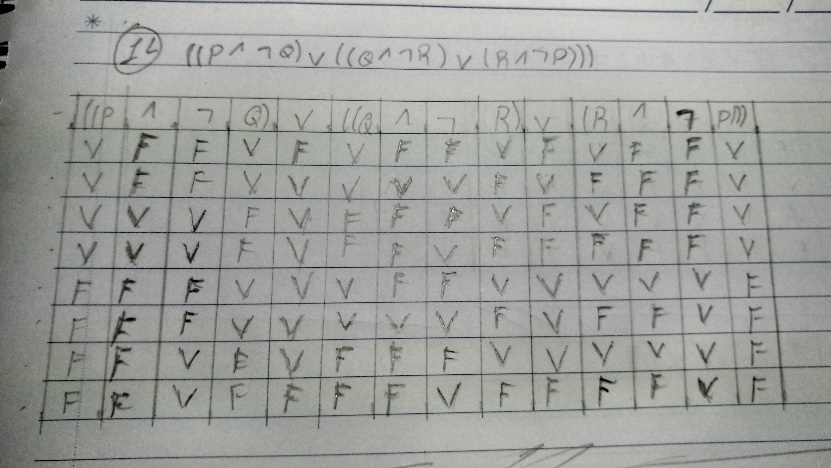 *
14 ((P ∧ ¬ Q) ∨ ((Q ∧ ¬ R) ∨ (R ∧ ¬ P)))
((P ∧ ¬ Q) ∨ ((Q ∧ ¬ R) ∨ (R ∧ ¬ P)))
V F F V F V F F V F V F F V
V F F V V V V V F V F F F V
V V V F V F F F V F V F F V
V V V F V F F V F F F F F V
F F F V V V F F V V V V V F
F F F V V V V V F V F F V F
F F V F V F F F V V V V V F
F F V F F F F V F F F F V F